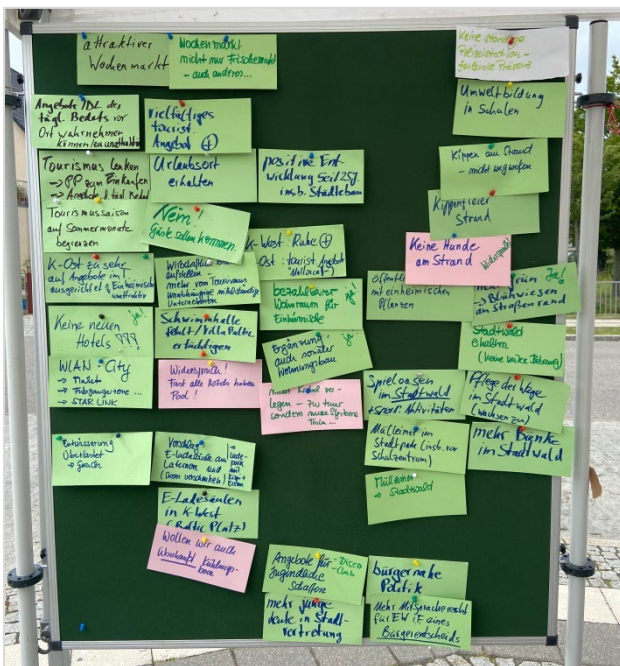 attraktiver
Wochenmarkt
Wochenmarkt
nicht nur Frischemarkt
- auch anderes...
Keine
Polizeistation -
Präsenz
Angebote /DL des
tägl. Bedarfs vor
Ort wahrnehmen
können
vielfältiges
tourist.
Angebot +
Umweltbildung
in Schulen
Tourismus lenken
→ PP zum Einkaufen
→ Angebote f. tägl. Bedarf
Urlaubsort
erhalten
positive Ent-
wicklung seit 25J.
insb. Städtebau
Kippen am Strand
- nicht wegwerfen
Kippenfreier
Strand
Tourismussaison
auf Sommermonate
begrenzen
Nein!
Gäste sollen kommen.
K-West: Ruhe +
Ost: tourist. Angebote
"Mallorca"
Keine Hunde
am Strand
Widerspruch!
K-Ost zu sehr
auf Angebote im T.
ausgerichtet
Wirtschaftlich
aufstellen
mehr vom Tourismus
unabhängige mittelständige
Unternehmen
bezahlbarer
Wohnraum für
Einheimische
ja!
mit einheimischen
Pflanzen
grün ja!
→ Blühwiesen
am Straßenrand
Keine neuen
Hotels
ja!
Schwimmhalle
fehlt / Villa Baltic
ertüchtigen
Ergänzung ja!
auch sozialer
Wohnungsbau
Stadtwald
erhalten
(keine weitere Bebauung)
WLAN - City
→
→
→ STARLINK
Widerspruch!
Fast alle Hotels haben
Pool!
legen - zu teuer
sondern neue
Spieloasen
im Stadtwald
+ sport. Aktivitäten
Pflege der Wege
im Stadtwald
(wachsen zu)
Entwässerung
überlastet
→ Geruch
Vorschlag:
E-Ladesäule an
Laternen und
Mülleimer im
Stadtpark (insb. vor
Schulzentrum)
mehr Bänke
im Stadtwald
E-Ladesäulen
in K-West
(Baltic Platz)
Mülleimer
→ Stadtwald
Wollen wir auch
Angebote für
Jugendliche
schaffen
- Disco
- Club
bürgernahe
Politik
mehr junge
Leute in Stadt-
vertretung
Mehr Mitspracherecht
für EW iF eines
Bürgerentscheids